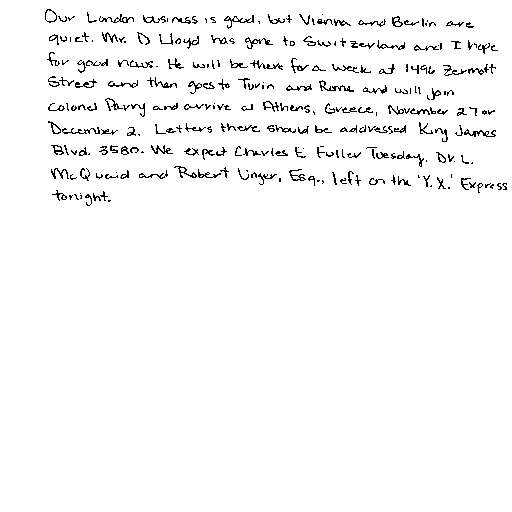 Our London business is good, but Vienna and Berlin are
quiet. Mr. D Lloyd has gone to Switzerland and I hope
for good news. He will be there for a week at 1496 Zermott
Street and then goes to Turin and Rome and will join
Colonel Parry and arrive at Athens, Greece, November 27 or
December 2. Letters there should be addressed King James
Blvd. 3580. We expect Charles E Fuller Tuesday. Dr. L.
McQuaid and Robert Unger, Esq., left on the 'Y.X.' Express
tonight.